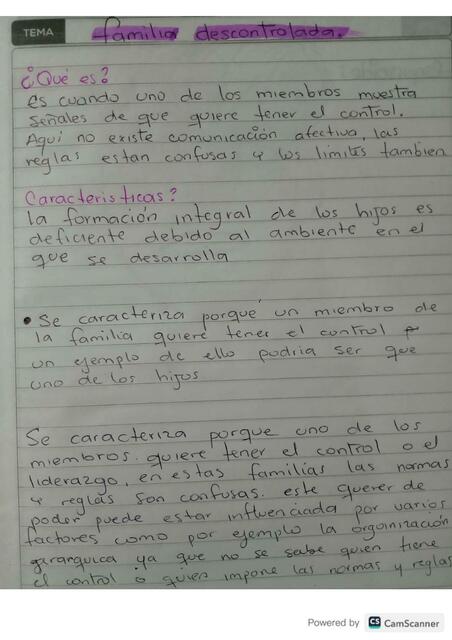 TEMA
familia descontrolada.
¿Qué es?
es cuando uno de los miembros muestra
señales de que quiere tener el control.
Aquí no existe comunicación afectiva, las
reglas estan confusas y los limites tambien
Caracteristicas?
la formación integral de los hijos es
deficiente debido al ambiente en el
que se desarrolla
• Se caracteriza porque un miembro de
la familia quiere tener el control
un ejemplo de ello podria ser que
uno de los hijos
Se caracteriza porque uno de los
miembros quiere tener el control o el
liderazgo, en estas familias las normas
y reglas son confusas. este querer de
poder puede estar influenciada por varios
factores como por ejemplo la organización
gerarquica ya que no se sabe quien tiene
el control o quien impone las normas y reglas
Powered by CS CamScanner